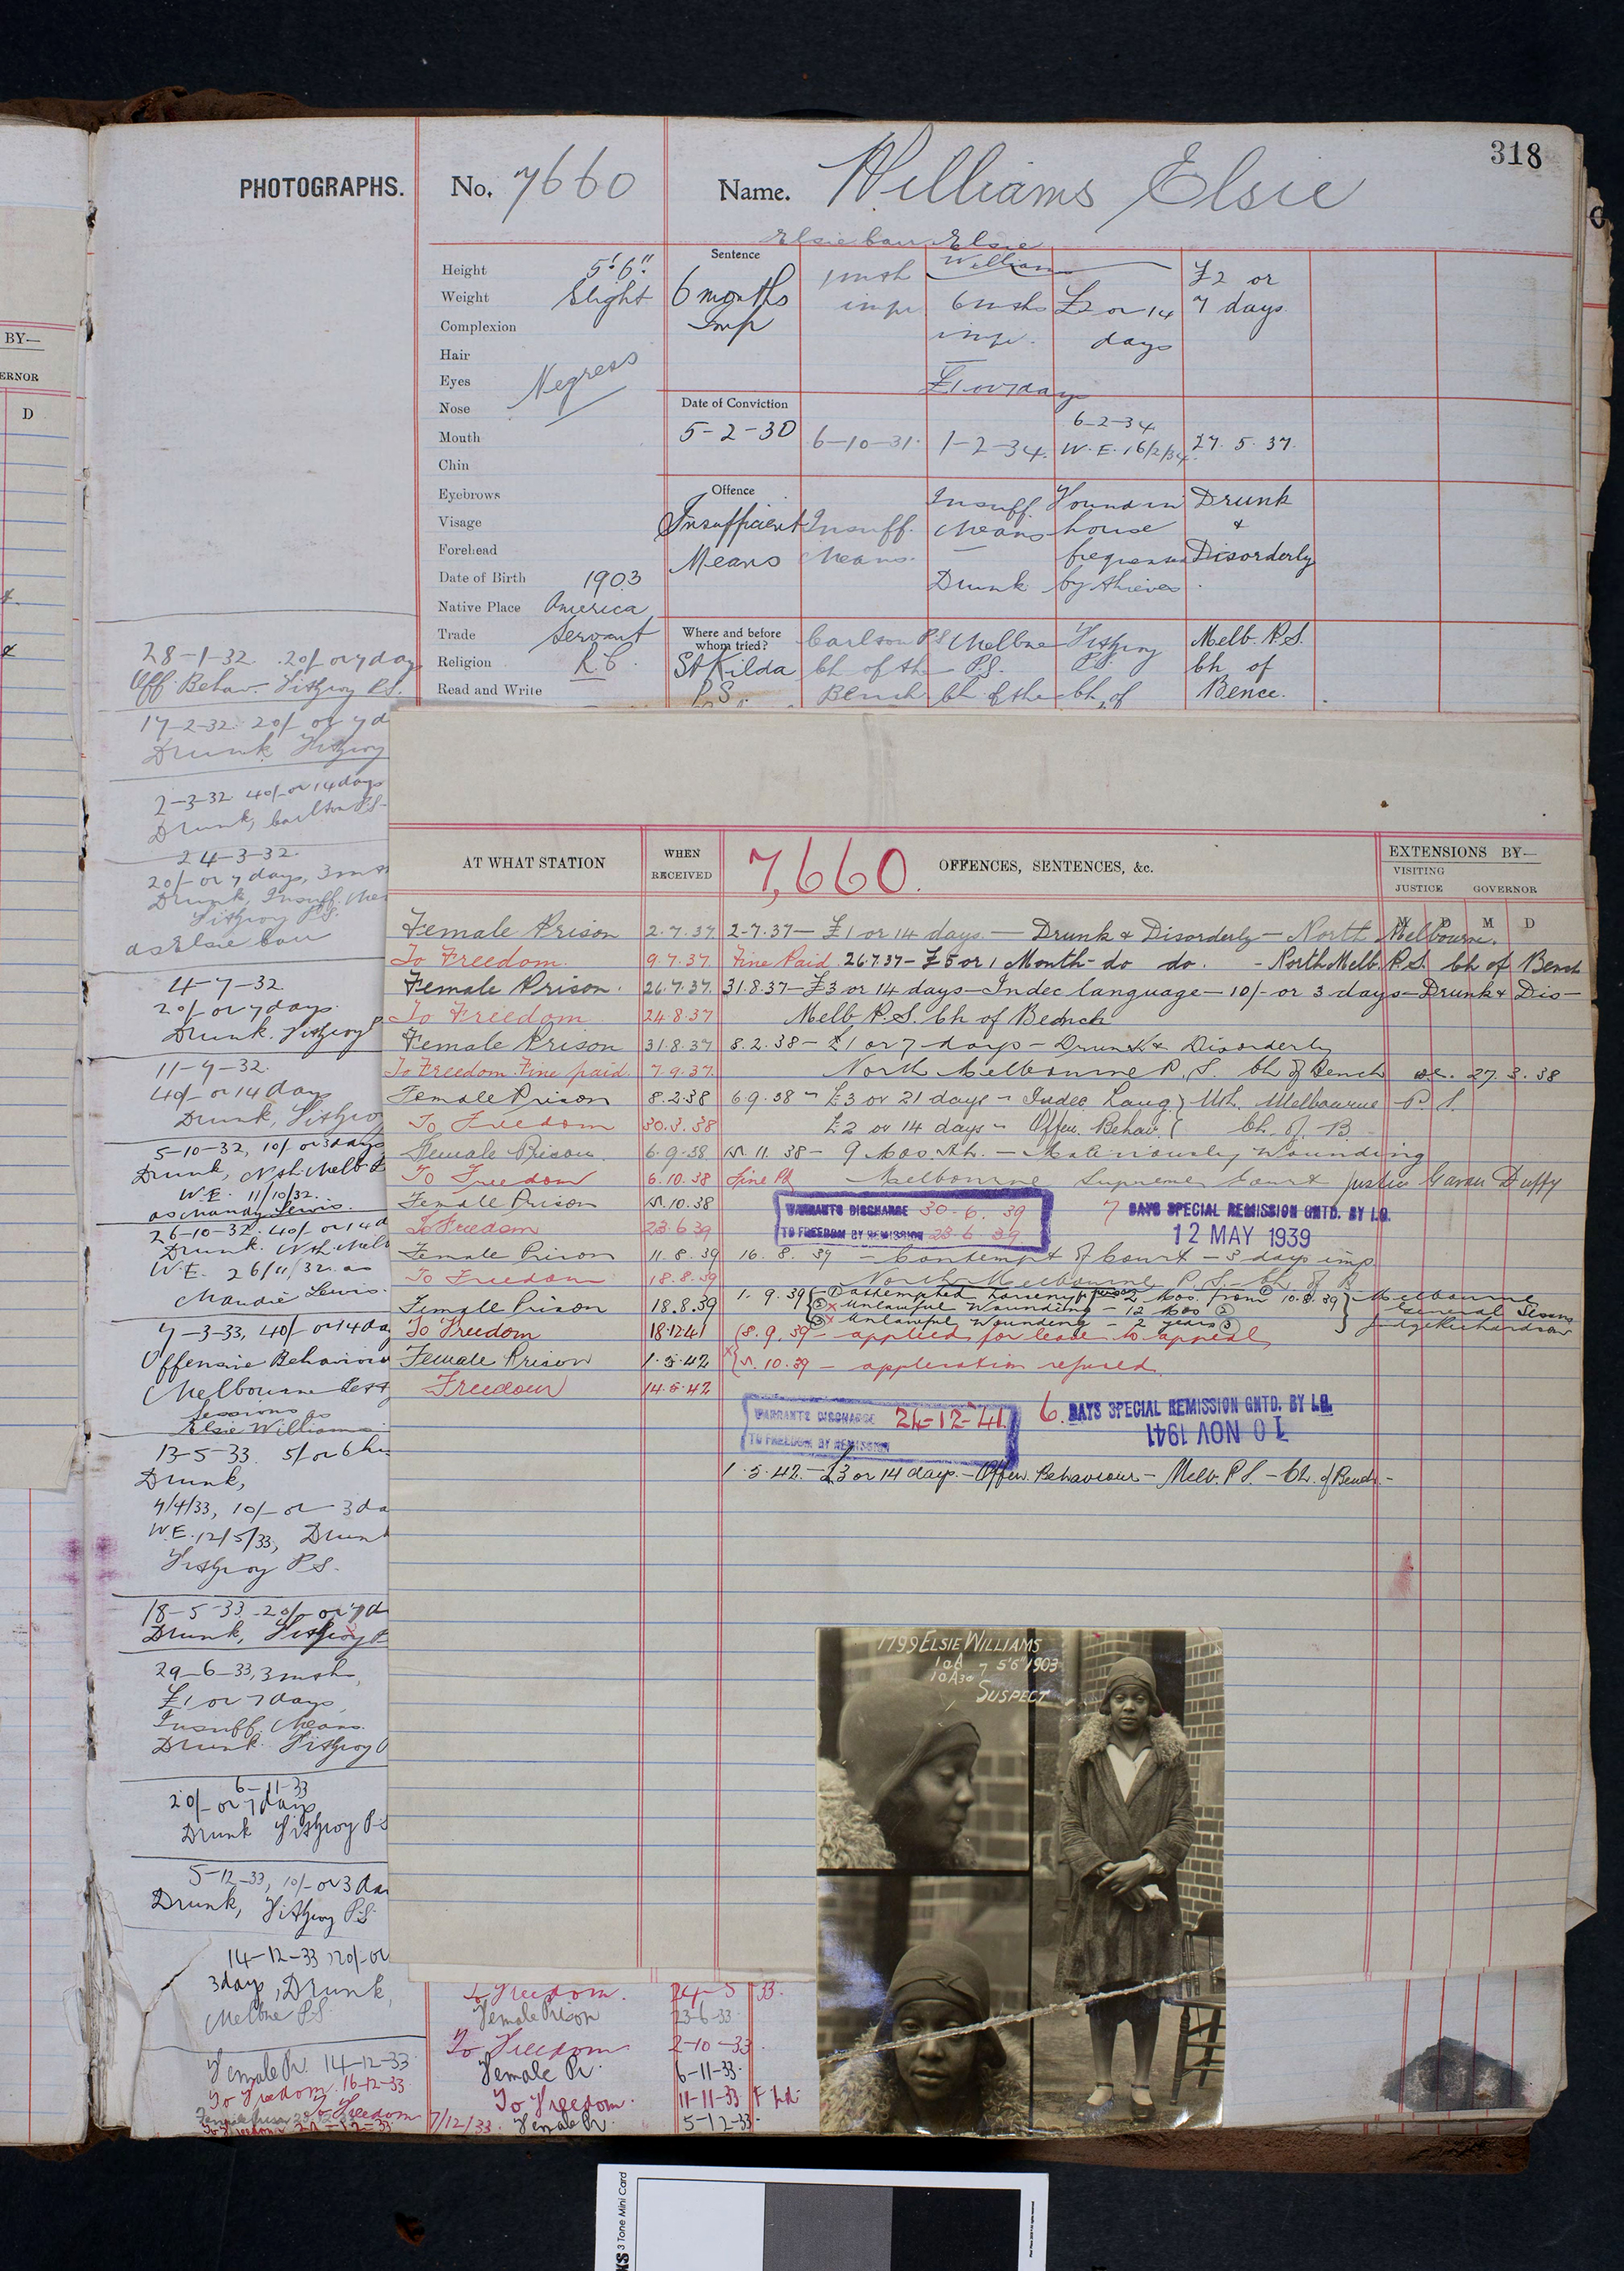 BY—
ERNOR
D
PHOTOGRAPHS.
No. 7660
Name. Williams Elsie
318
Elsie Carr Elsie Williams
Height 5' 6"
Weight Slight
Complexion
Hair
Eyes
Negress
Nose
Mouth
Chin
Eyebrows
Visage
Forehead
Date of Birth 1903
Native Place America
Trade Servant
Religion R.C.
Read and Write
Sentence
6 months Imp
1 mth imp
6 mths imp.
£1 or 7 days
£2 or 14 days
£2 or 7 days
Date of Conviction
5-2-30
6-10-31.
1-2-34.
6-2-34
W.E. 16/2/34
27.5.37.
Offence
Insufficient Means
Insuff. Means.
Insuff. Means
Drunk
Found in house frequented by thieves
Drunk & Disorderly
Where and before whom tried?
St Kilda P.S.
Carlton P.S. Ch of the Bench
Melbne P.S. Ch of the
Fitzroy P.S. Ch. of
Melb. P.S. Ch of Bence.
28-1-32 20/- or 7 day
Off Behav. Fitzroy P.S.
17-2-32. 20/- or 7 d
Drunk Fitzroy
2-3-32. 40/- or 14 days
Drunk, Carlton P.S.
24-3-32.
20/- or 7 days, 3 mth
Drunk, Insuff. Mea
Fitzroy P.S.
as Elsie Carr
4-7-32
20/- or 7 days.
Drunk. Fitzroy P
11-9-32.
40/- or 14 days
Drunk, Fitzroy
5-10-32, 10/- or 3 days
Drunk, Nth. Melb P
W.E. 11/10/32.
as Maudy Lewis.
26-10-32. 40/- or 14 d
Drunk. Nth. Melb
W.E. 26/11/32. as
Maudie Lewis.
7-3-33, 40/- or 14 da
Offensive Behaviour
Melbourne
Sessions as
Elsie Williams
13-5-33. 5/- or 6 hrs
Drunk,
4/4/33, 10/- or 3 da
W.E. 12/5/33, Drunk
Fitzroy P.S.
18-5-33. 20/- or 7 d
Drunk, Fitzroy P
29-6-33, 3 mths,
£1 or 7 days
Insuff. Means.
Drunk. Fitzroy
6-11-33
20/- or 7 days
Drunk Fitzroy P.S
5-12-33, 10/- or 3 da
Drunk, Fitzroy P.S
14-12-33, 20/- or
3 days, Drunk,
Melbne P.S
Female Pr. 14-12-33
To Freedom. 16-12-33
To Freedom
AT WHAT STATION
WHEN RECEIVED
7,660.
OFFENCES, SENTENCES, &c.
EXTENSIONS BY—
VISITING JUSTICE
GOVERNOR
M D M D
Female Prison 2.7.37 2-7.37— £1 or 14 days — Drunk & Disorderly — North Melbourne.
To Freedom. 9.7.37. Fine Paid. 26.7.37— £5 or 1 Month - do do. - North Melb P.S. Ch of Bench
Female Prison. 26.7.37. 31.8.37— £3 or 14 days — Indec language — 10/- or 3 days — Drunk & Dis—
To Freedom 24.8.37 Melb P.S. Ch of Bednch
Female Prison 31.8.37 8.2.38 — £1 or 7 days — Drunk & Disorderly
To Freedom Fine paid. 7.9.37. North Melbourne P.S. Ch of Bench 27.3.38
Female Prison 8.2.38 6.9.38 — £3 or 21 days — Indec Lang } Nth. Melbourne P.S.
To Freedom 30.3.38 £2 or 14 days — Offen. Behav. { Ch. of. B.
Female Prison. 6.9.38 15.11.38 — 9 Months. — Maliciously Wounding
To Freedom 6.10.38 Fine Pd Melbourne Supreme Court Justice Gavan Duffy
Female Prison 15.10.38
WARRANTS DISCHARGE 30.6.39
TO FREEDOM BY REMISSION 23.6.39
7 DAYS SPECIAL REMISSION GNTD. BY I.G.
12 MAY 1939
To Freedom 23.6.39
Female Prison 11.8.39 16.8.39 — Contempt of Court — 3 days imp.
To Freedom 18.8.39 North Melbourne P.S. — Ch. of B
Female Prison 18.8.39 1.9.39 { ① Attempted Larceny f person 2 Mos. from 10.8.39 } Melbourne
② x Unlawful Wounding — 12 Mos ② General Sessns
③ x Unlawful Wounding — 2 years ③ Judge Richardson
To Freedom 18.12.41 (8.9.39 — applied for leave to appeal
Female Prison 1.5.42 x{ 5.10.39 — application refused.
Freedom 14.5.42
WARRANTS DISCHARGE 24-12-41
TO FREEDOM BY REMISSION
6. DAYS SPECIAL REMISSION GNTD. BY I.G.
10 NOV 1941
1.5.42. — £3 or 14 days. — Offen. Behaviour — Melb. P.S. — Ch. of Bench. —
1799 ELSIE WILLIAMS
5'6" 1903
SUSPECT
To Freedom. 24-5 33.
Female Prison 23-6-33.
To Freedom 2-10-33.
Female Pr. 6-11-33.
To Freedom. 11-11-33
7/12/33. Female Pr. 5-12-33.
3 Tone Mini Card